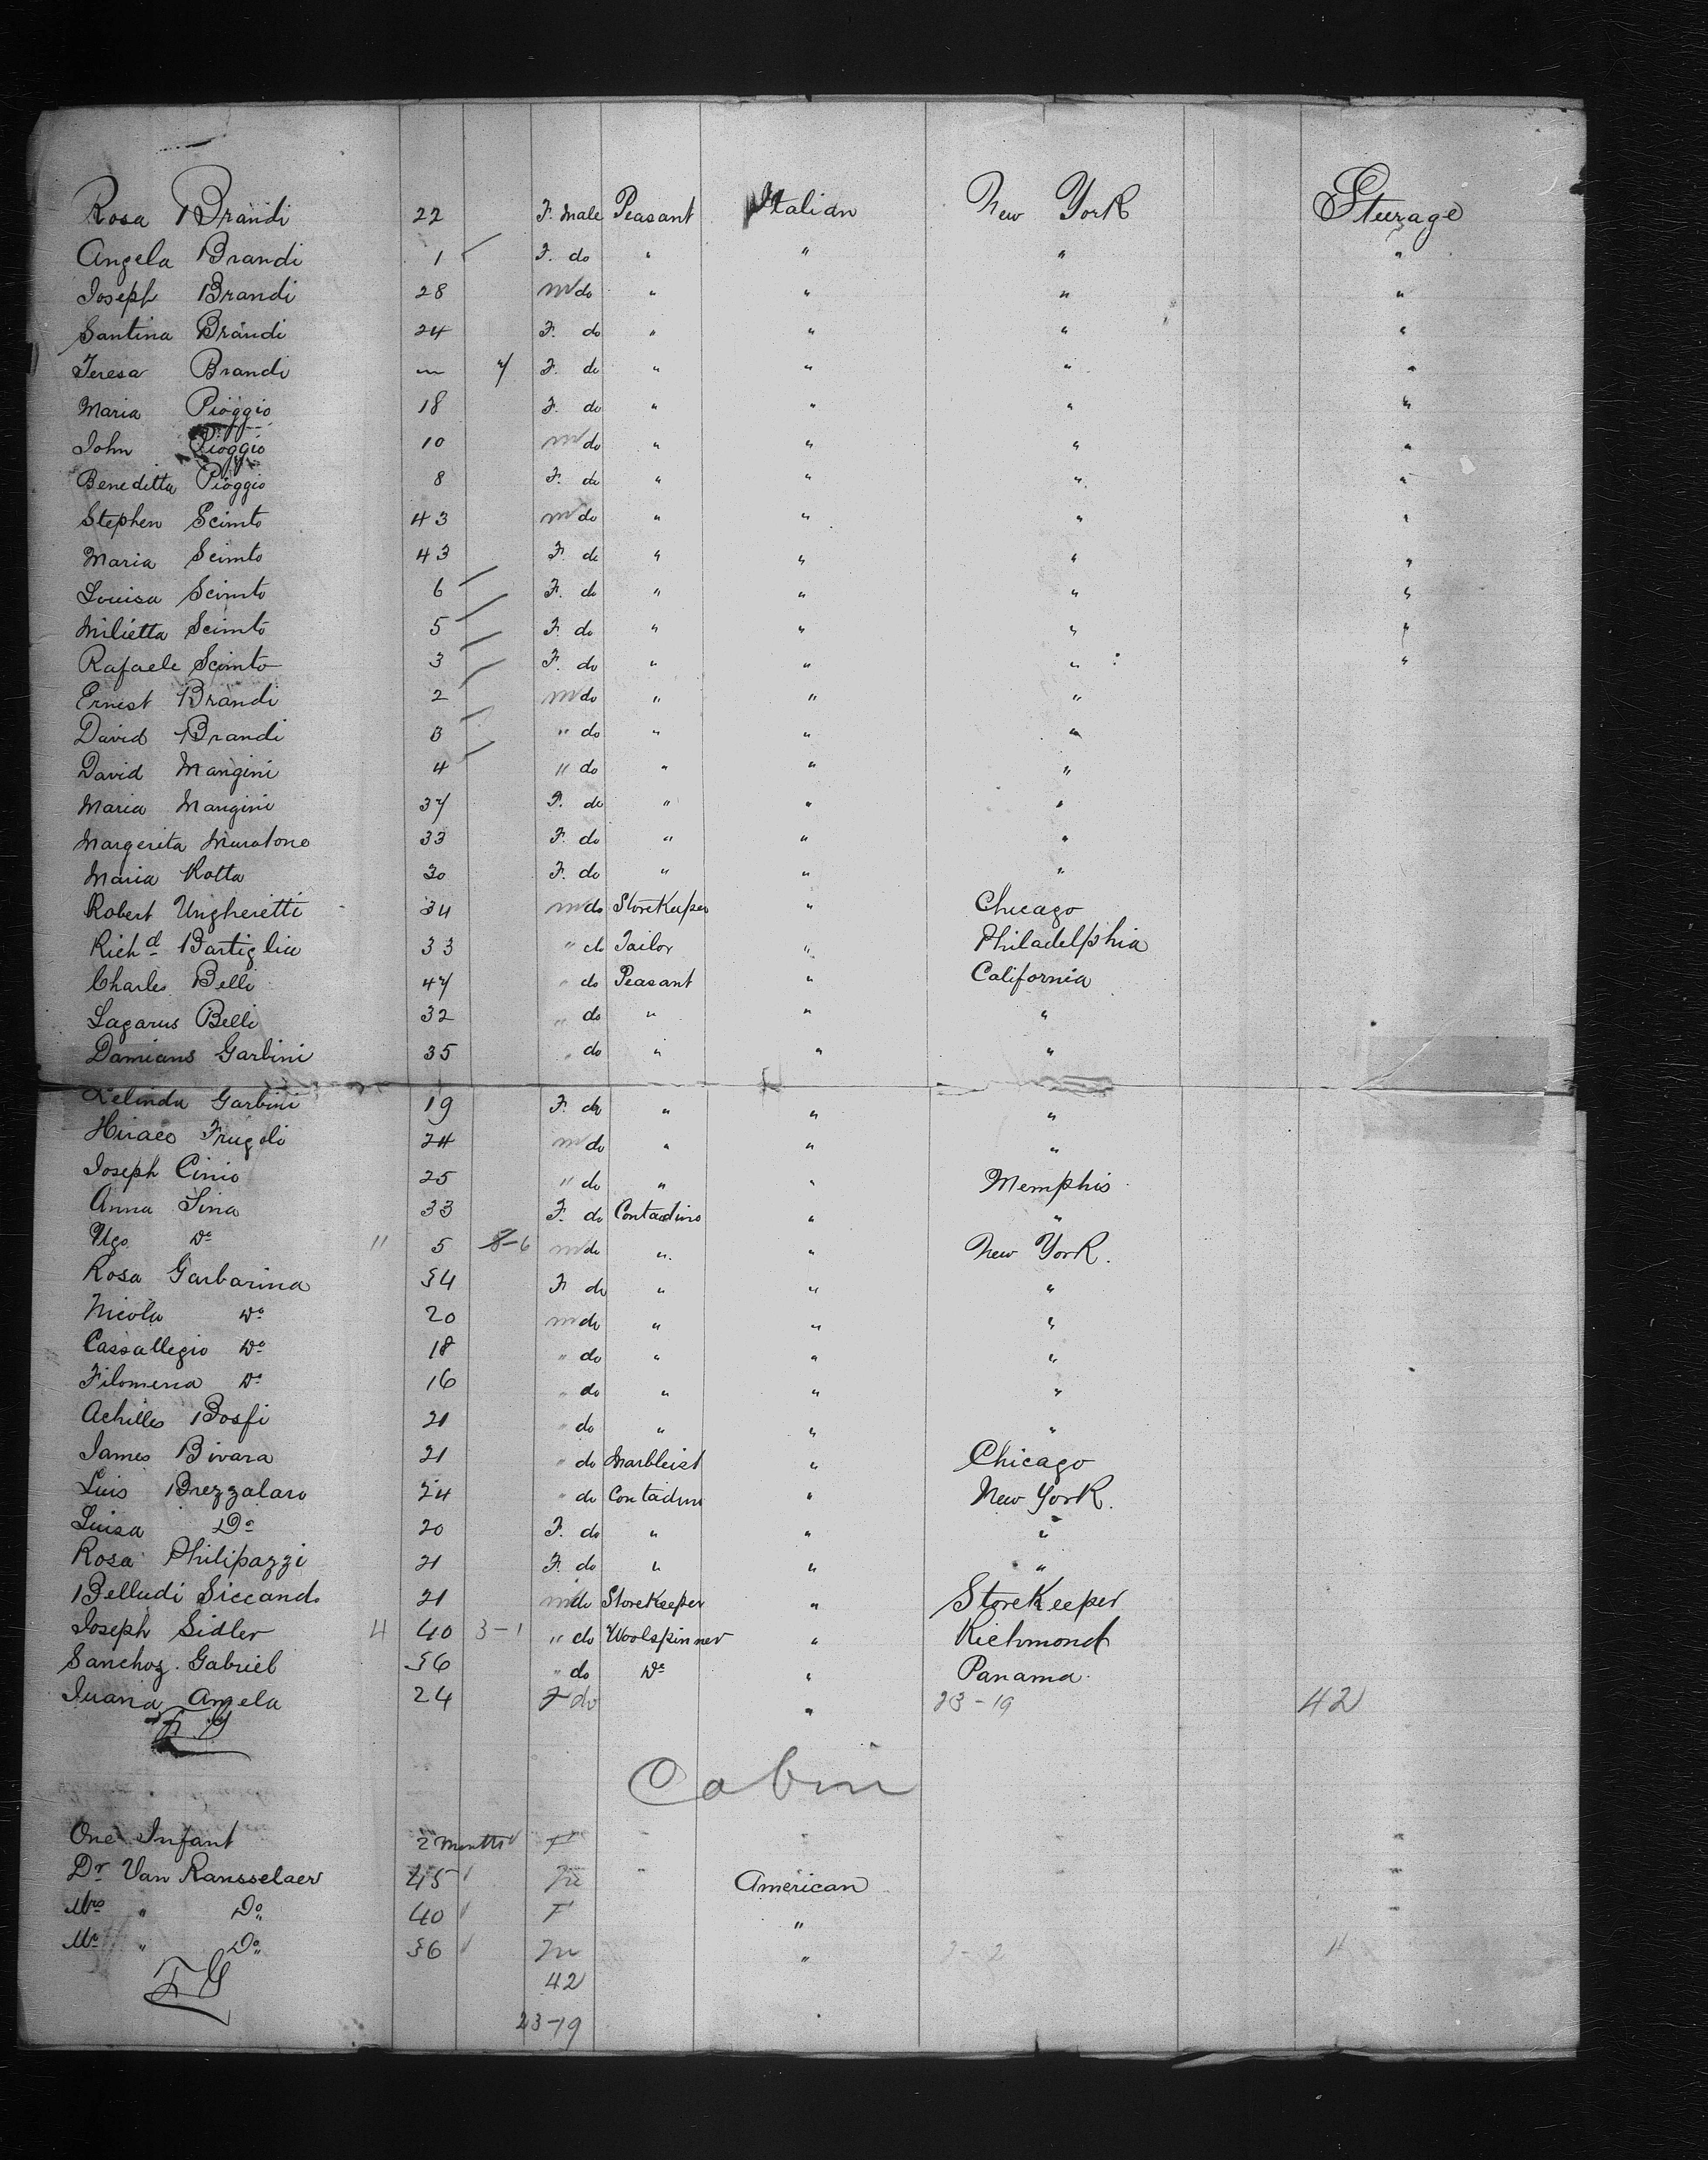 Rosa Brandi 22 F. Male Peasant Italian New York Steerage
Angela Brandi 1 F. do " " " "
Joseph Brandi 28 m do " " " "
Santina Brandi 24 F. do " " " "
Teresa Brandi 7 F. do " " " "
Maria Pioggio 18 F. do " " " "
John Pioggio 10 m do " " " "
Beneditta Pioggio 8 F. do " " " "
Stephen Scimto 43 m do " " " "
Maria Scimto 43 F. do " " " "
Louisa Scimto 6 F. do " " " "
Milietta Scimto 5 F. do " " " "
Rafaele Scimto 3 F. do " " " "
Ernest Brandi 2 m do " " "
David Brandi " do " " "
David Mangini 4 " do " " "
Maria Mangini 37 F. do " " "
Margerita Muratone 33 F. do " " "
Maria Rotta 30 F. do " " "
Robert Ungheretti 34 m do StoreKeeper " Chicago
Richd Bartiglia 33 " do Tailor " Philadelphia
Charles Belli 47 " do Peasant " California
Lagarus Belli 32 " do " " "
Damians Garbini 35 " do " " "
Garbini 19 F. do " " "
Frugoli 24 m do " " "
Joseph Cinio 25 " do " " Memphis
Anna Sina 33 F. do Contadino " "
Ugo Do " 5 8-6 m do " " New York.
Rosa Garbarina 54 F do " " "
Nicola Do 20 m do " " "
Cassallegio Do 18 " do " " "
Filomena Do 16 " do " " "
Achilles Bosfi 21 " do " " "
James Bivara 21 " do Marbleist " Chicago
Luis Brezzalaro 24 " do Contadino " New York.
Luisa Do 20 F. do " " "
Rosa Philipazzi 21 F. do " " "
Belludi Siccando 21 m do StoreKeeper " StoreKeeper
Joseph Sidler 4 40 3-1 " do Woolspinner " Richmond
Sanchoz. Gabriel 56 " do Do " Panama
Juana Angela 24 F do " 23-19 42
Cabin
One Infant 2 Months F
Dr Van Ransselaer 45 M American
Mrs " Do 40 F "
Mr " Do 56 M " 2-2 4
FG 42
23-19